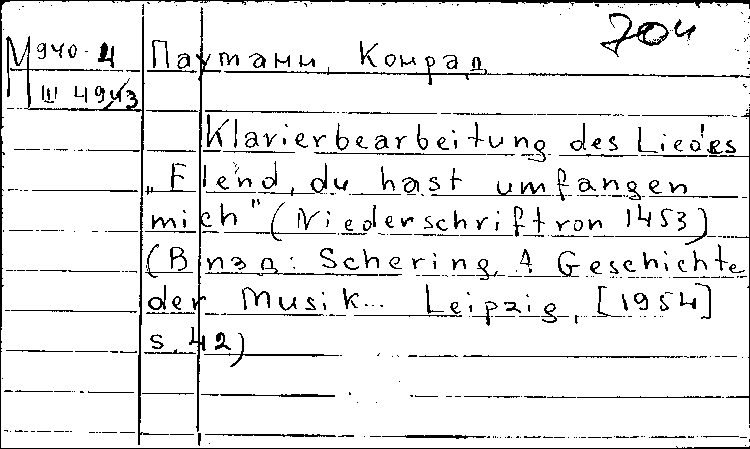 704
М 940-4
III 4943
Паумани, Конрад
Klavierbearbeitung des Liedes
„Elend, du hast umfangen
mich" (Niederschrift von 1453)
(В изд: Schering, A Geschichte
der Musik... Leipzig, [1954]
s. 42)